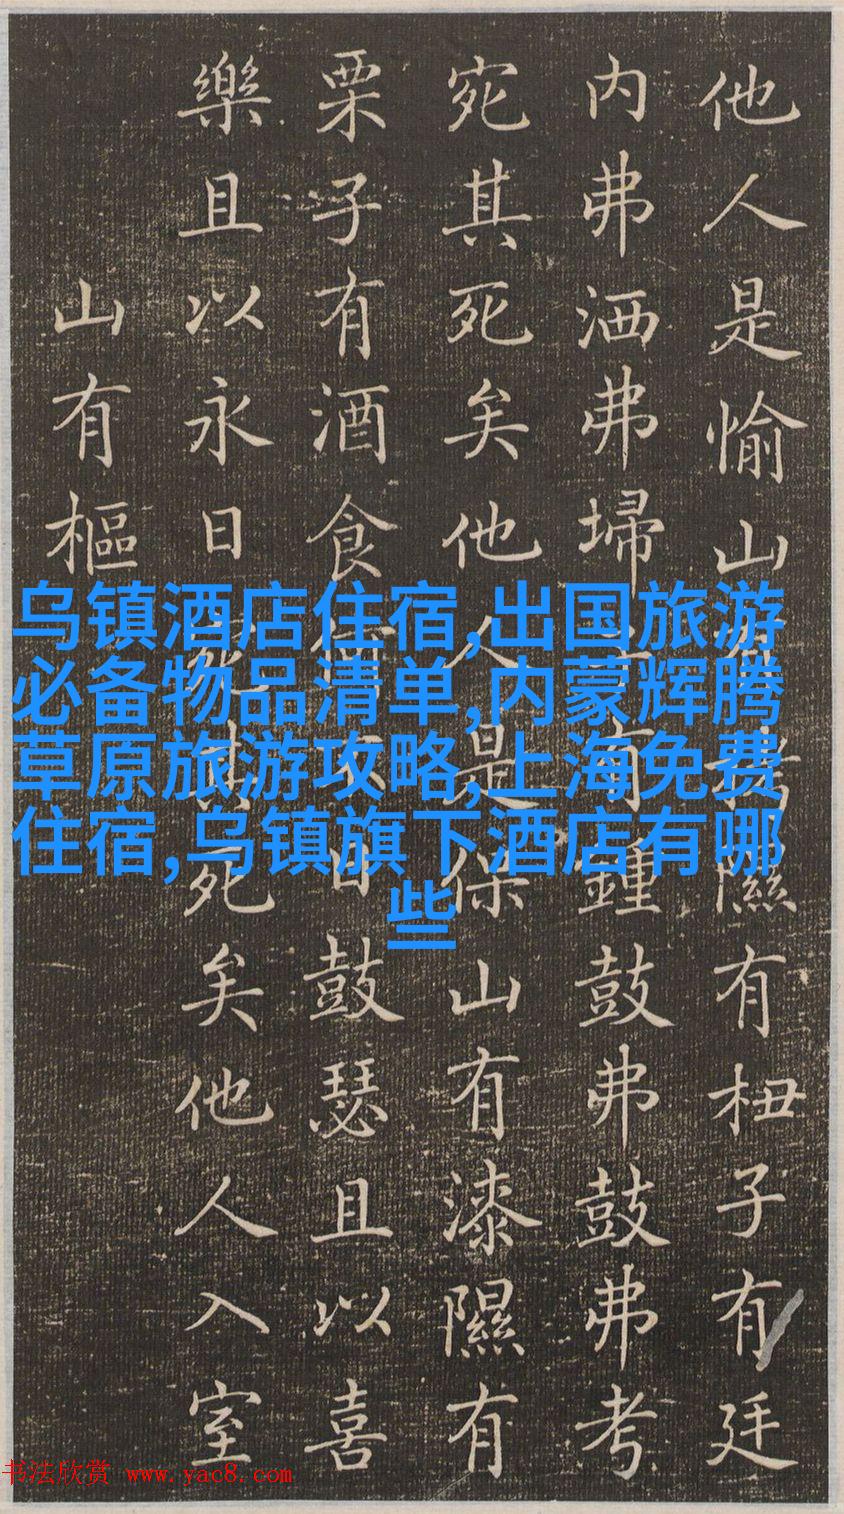 他人是愉山有隰有杻子有廷
内弗洒弗埽有鍾鼓弗鼓弗考
宛其死矣他人是保山有漆隰有
栗子有酒食何日鼓瑟且以喜
樂且以永日宛其死矣他人入室
山有樞
乌镇酒店住宿,出国旅游
必备物品清单,内蒙辉腾
草原旅游攻略,上海免费
住宿,乌镇旗下酒店有哪
些
书法欣赏 www.yac8.com